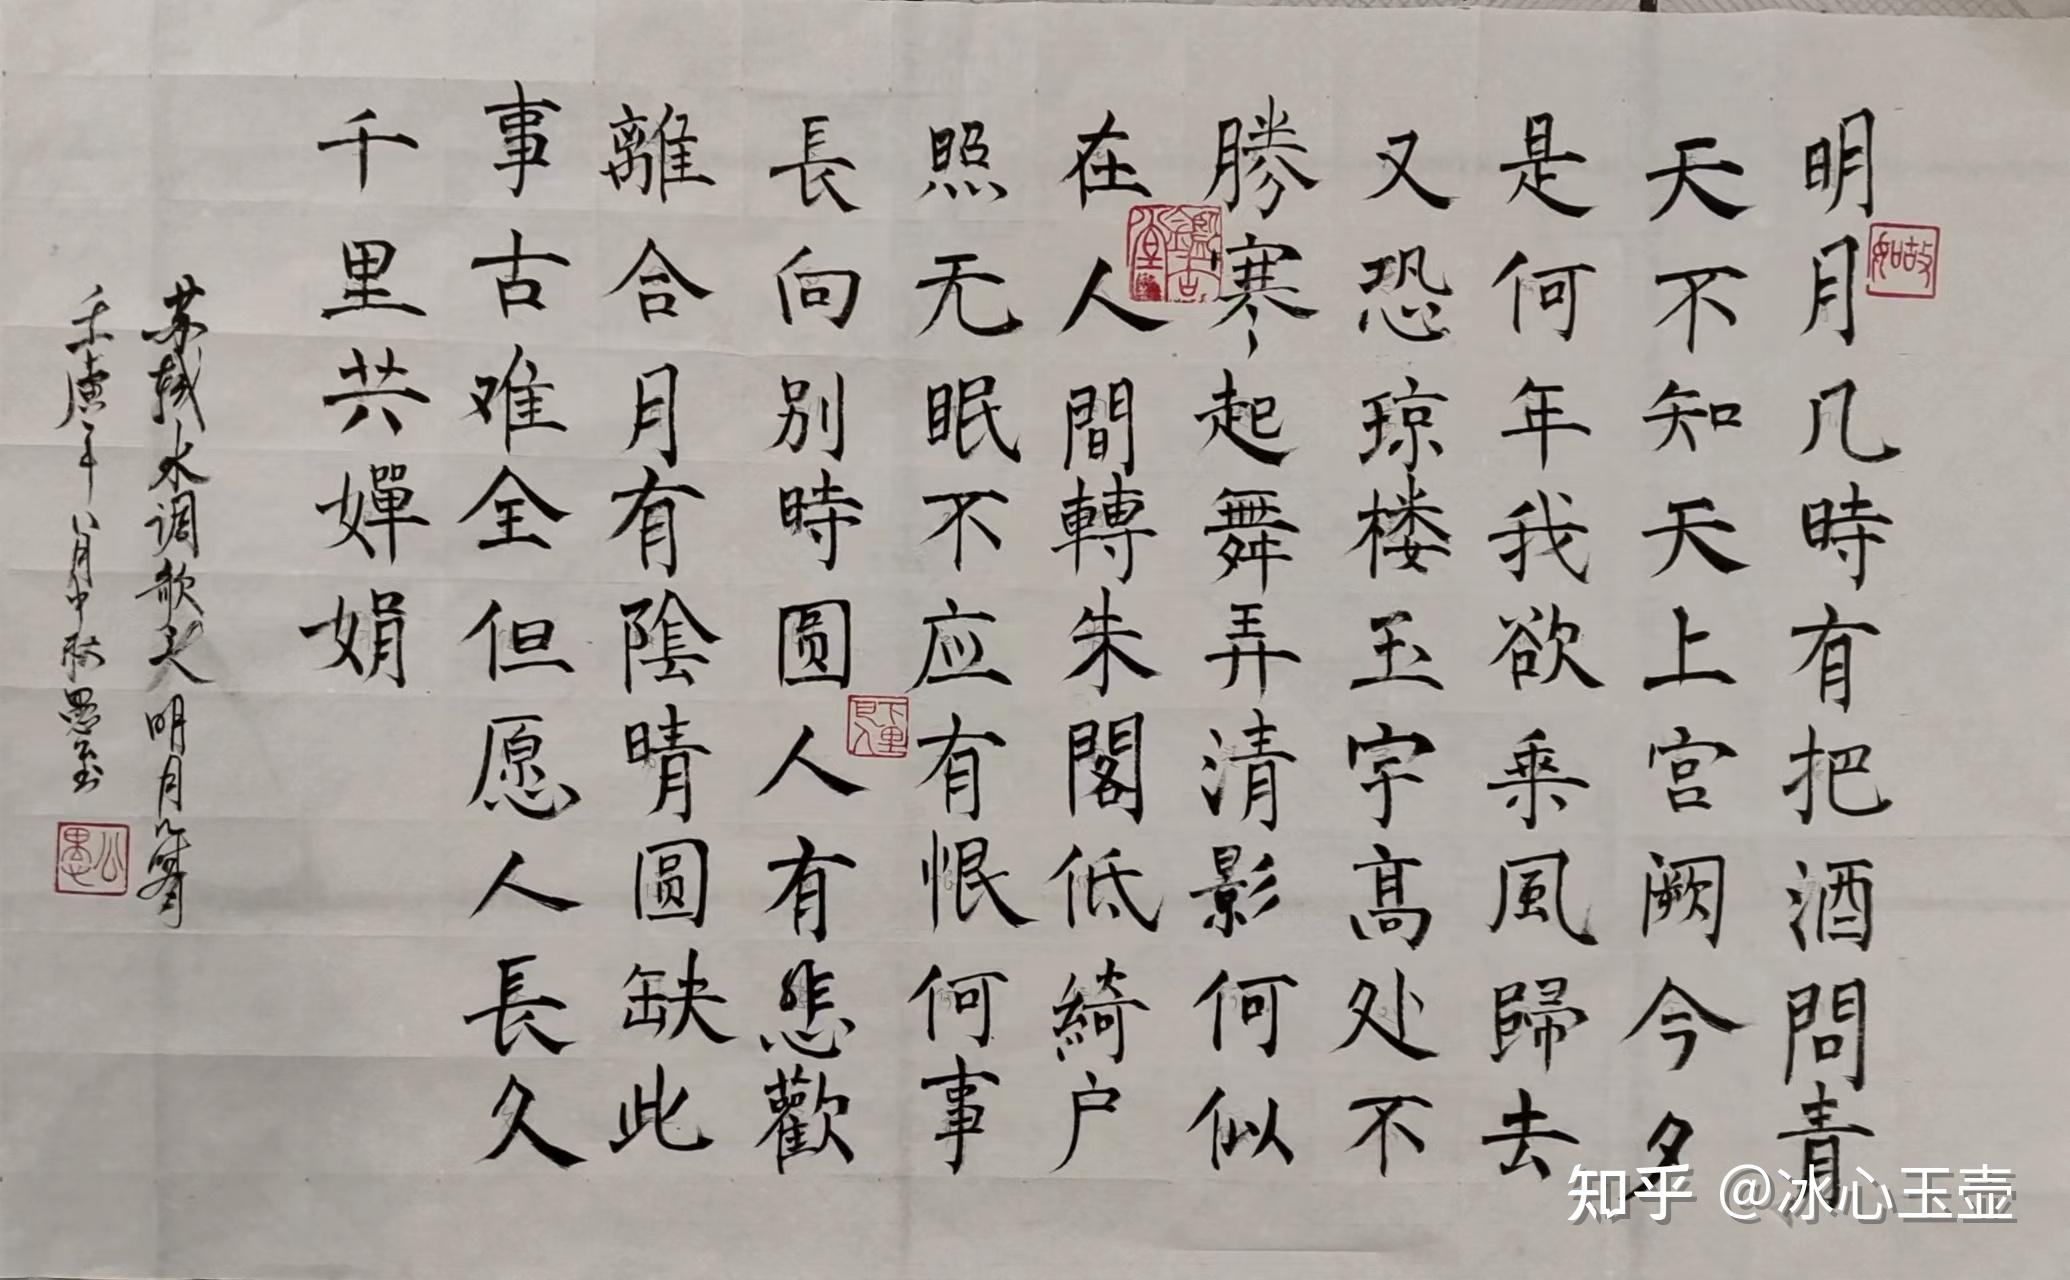 明月几時有把酒問青
天不知天上宫阙今夕
是何年我欲乘風歸去
又恐琼楼玉宇高处不
勝寒起舞弄清影何似
在人間轉朱閣低綺户
照无眠不应有恨何事
長向别時圓人有悲歡
離合月有陰晴圓缺此
事古难全但愿人長久
千里共嬋娟
苏轼水调歌头明月几時有
壬寅年八月中秋愚
下里巴人
知乎 @冰心玉壶